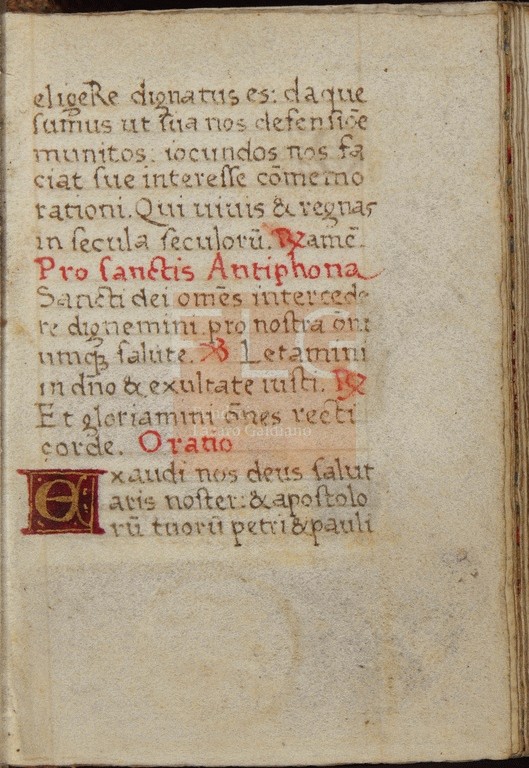 eligeRe dignatus es: da que
sumus ut sua nos defensiõe
munitos: iocundos nos fa
ciat sue interesse cõmemo
rationi. Qui uiuis & regnas
in secula seculorũ. ℟ amẽ.
Pro sanctis Antiphona
Sancti dei omẽs intercede
re dignemini pro nostra õni
umqꝫ salute. ℣ Letamini
in dño & exultate iusti. ℟
Et gloriamini õnes recti
corde. Oratio
Exaudi nos deus salut
aris noster: & apostolo
rũ tuorũ petri & pauli
FLG
Lázaro Galdiano